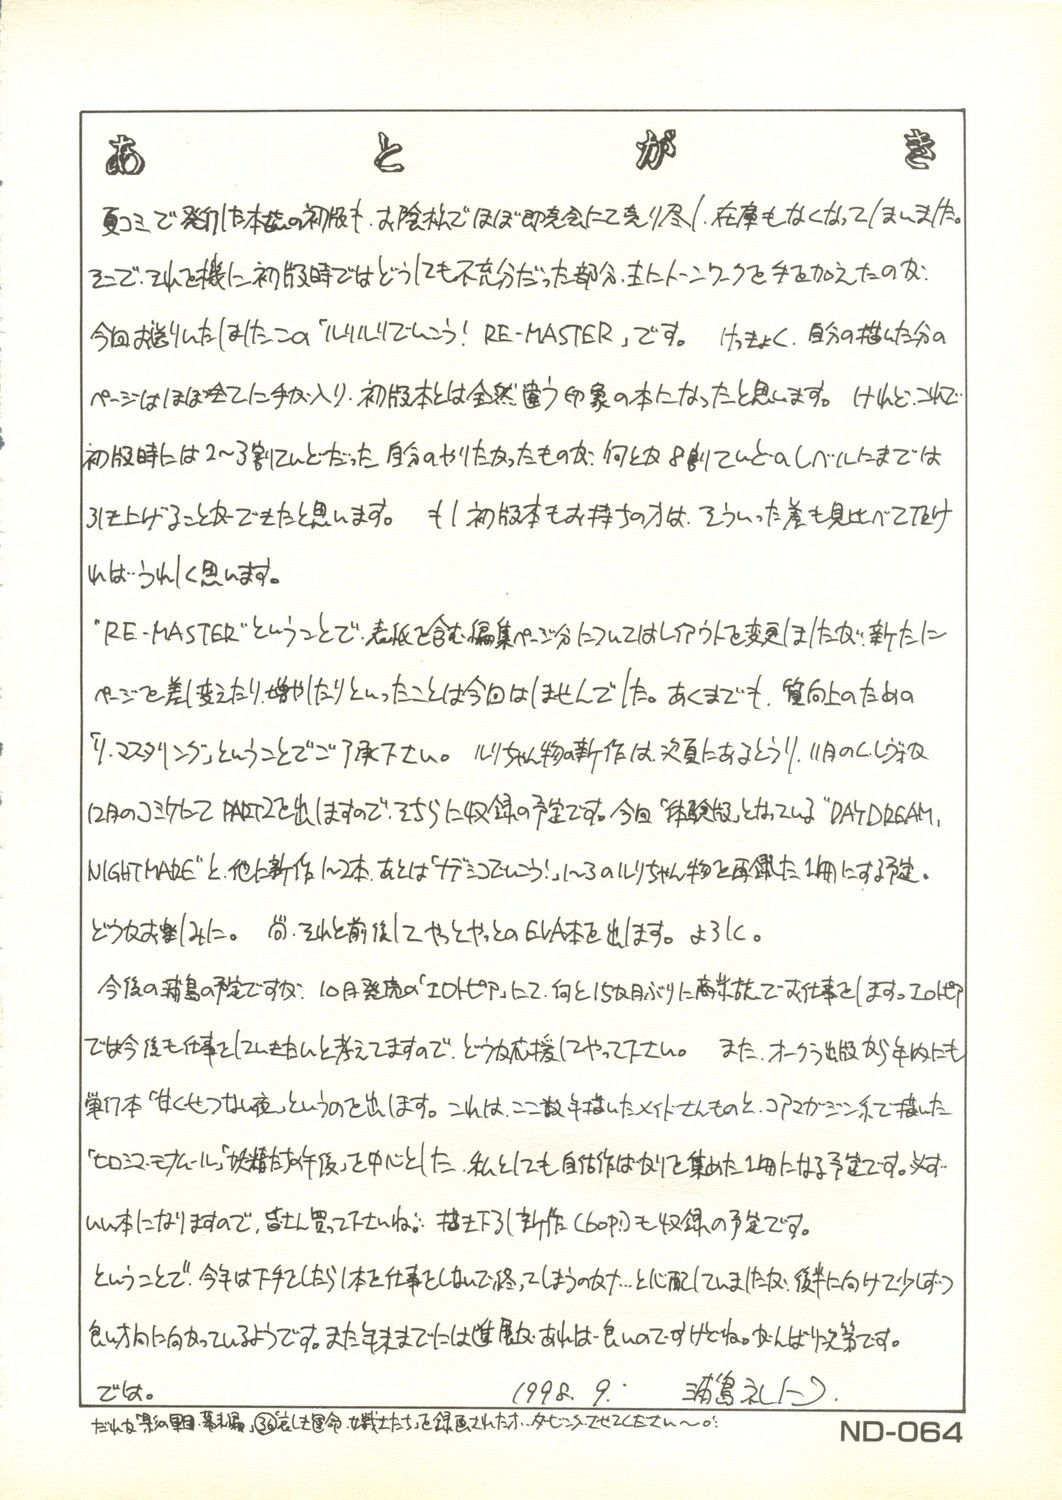 あとがき
夏コミで発行した本誌の初版も、お陰様でほぼ即売会にて売り尽し、在庫もなくなってしまいました。
そこで、それを機に、初版時ではどうしても不充分だった部分、主にトーンワークを手を加えたのが、
今回お送りいたしましたこの「ルリルリでいこう! RE-MASTER」です。 けっきょく、自分の描いた分の
ページはほぼ全てに手が入り、初版本とは全然違う印象の本になったと思います。 けれど、これで
初版時には2〜3割ていどだった、自分のやりたかったものが、何とか8割ていどのレベルにまでは
引き上げることができたと思います。 もし初版本もお持ちの方は、そういった差も見比べて頂け
ればうれしく思います。
"RE-MASTER"ということで、表紙を含む編集ページ分についてはレイアウトを変更しましたが、新たに
ページを差し変えたり、増やしたりといったことは今回はしませんでした。あくまでも、質向上のための
「リ・マスタリング」ということでご了承下さい。 ルリちゃん物の新作は、次頁にあるとうり、11月のC.レヴォか
12月のコミケにて PART2を出しますので、そちらに収録の予定です。今回「体験版」となっている"DAYDREAM,
NIGHTMARE"と、他に新作1〜2本、あとは「ナデシコでいこう!」1〜3のルリちゃん物を再録した1冊にする予定。
どうかお楽しみに。 尚、それと前後してやっとやっとのEVA本を出します。よろしく。
今後の浦島の予定ですが、10月発売の「エロトピア」にて、何と15か月ぶりに商業誌でお仕事をします。エロトピア
では今後も仕事をしていきたいと考えてますので、どうか応援してやって下さい。 また、オークラ出版から年内にも
単行本「甘くせつない夜」というのを出します。これは、ここ数年描いたメイドさんものと、コアマガジン系で描いた
「ヒロシマ・モナムール」「妖精たちの午後」を中心とした、私としても自信作ばかりを集めた1冊になる予定です。必ず
いい本になりますので、皆さん買って下さいね。描き下ろし新作(60p!)も収録の予定です。
ということで、今年は下手をしたら1本を仕事をしないで終ってしまうのかナ…と心配していましたが、後半に向けて少しずつ
良い方向に向かっているようです。また年末までには進展があれば良いのですけどね。がんばり次第です。
では。 1998. 9. 浦島礼仁
だれか「影の軍団・幕末編」「哀しき運命、女戦士たち」を録画された方、ダビングさせてください〜。
ND-064